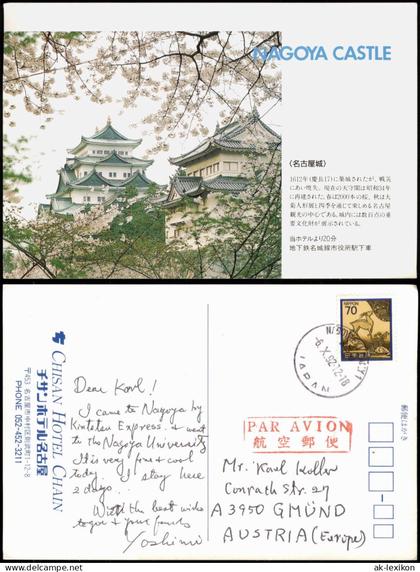 NAGOYA CASTLE
〈名古屋城〉
1612年(慶長17)に築城されたが、戦災
にあい焼失。現在の天守閣は昭和34年
に再建された。春は2000本の桜、秋は大
菊人形展と四季を通じて楽しめる名古屋
観光の中心である。城内には数百点の重
要文化財が展示されている。
当ホテルより20分
地下鉄名城線市役所駅下車
CHISAN HOTEL CHAIN
チサンホテル名古屋
〒453 名古屋市中村区則武1-12-8
PHONE (052)452-3211
Dear Karl!
I came to Nagoya by
Kintetsu Express. I went
to the Nagoya University
It is very fine & cool
today. I stay here
2 days...
With the best wishes
to you & your family
Yoshimi
NIPPON
70
日本郵便
-6.X.92.12-18
JAPAN
PAR AVION
航空郵便
郵便はがき
Mr. Karl Koller
Conrath Str. 27
A 3950 GMÜND
AUSTRIA (Europe)
© ak-lexikon.de
ak-lexikon